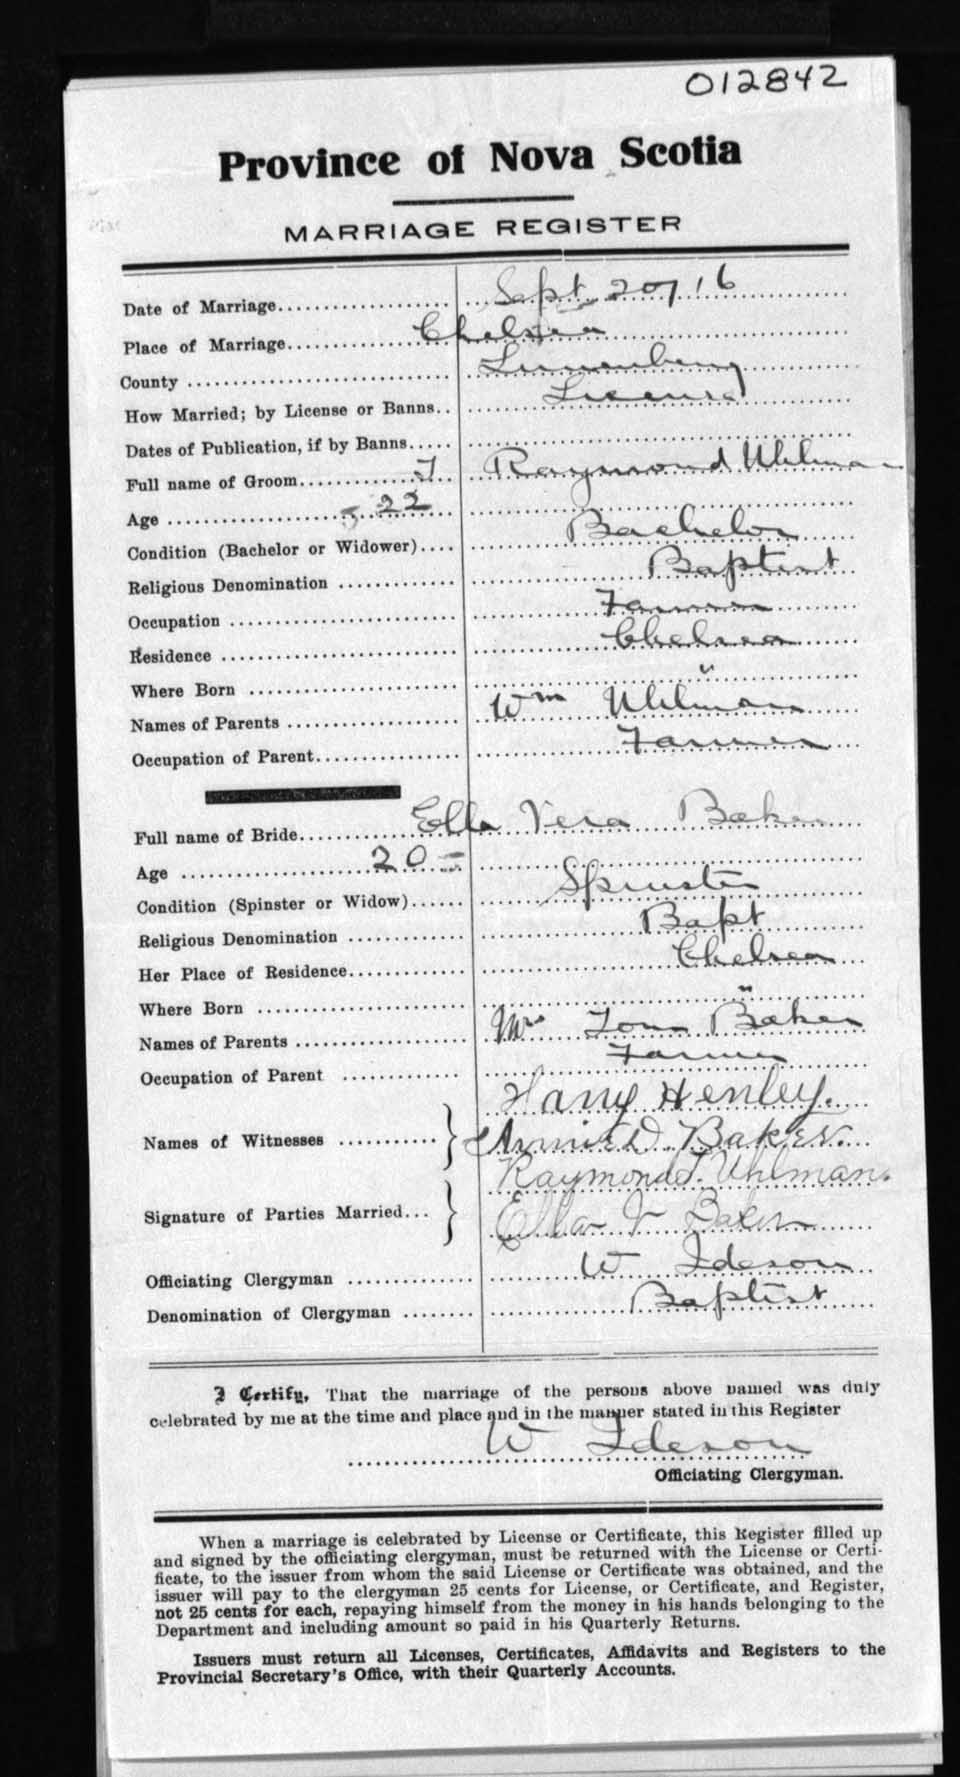 012842
Province of Nova Scotia
MARRIAGE REGISTER
Date of Marriage Sept 20/16
Place of Marriage Chelsea
County Lunenburg
How Married; by License or Banns License
Dates of Publication, if by Banns
Full name of Groom J Raymond Uhlman
Age 22
Condition (Bachelor or Widower) Bachelor
Religious Denomination Baptist
Occupation Farmer
Residence Chelsea
Where Born "
Names of Parents Wm Uhlman
Occupation of Parent Farmer
Full name of Bride Ella Vera Baker
Age 20
Condition (Spinster or Widow) Spinster
Religious Denomination Bapt
Her Place of Residence Chelsea
Where Born "
Names of Parents Baker
Occupation of Parent Farmer
Harry Henley.
Names of Witnesses Annie D. Baker.
Raymond J. Uhlman.
Signature of Parties Married Ella V Baker
Officiating Clergyman W Ideson
Denomination of Clergyman Baptist
I Certify, That the marriage of the persons above named was duly
celebrated by me at the time and place and in the manner stated in this Register
W Ideson
Officiating Clergyman.
When a marriage is celebrated by License or Certificate, this Register filled up
and signed by the officiating clergyman, must be returned with the License or Certi-
ficate, to the issuer from whom the said License or Certificate was obtained, and the
issuer will pay to the clergyman 25 cents for License, or Certificate, and Register,
not 25 cents for each, repaying himself from the money in his hands belonging to the
Department and including amount so paid in his Quarterly Returns.
Issuers must return all Licenses, Certificates, Affidavits and Registers to the
Provincial Secretary's Office, with their Quarterly Accounts.